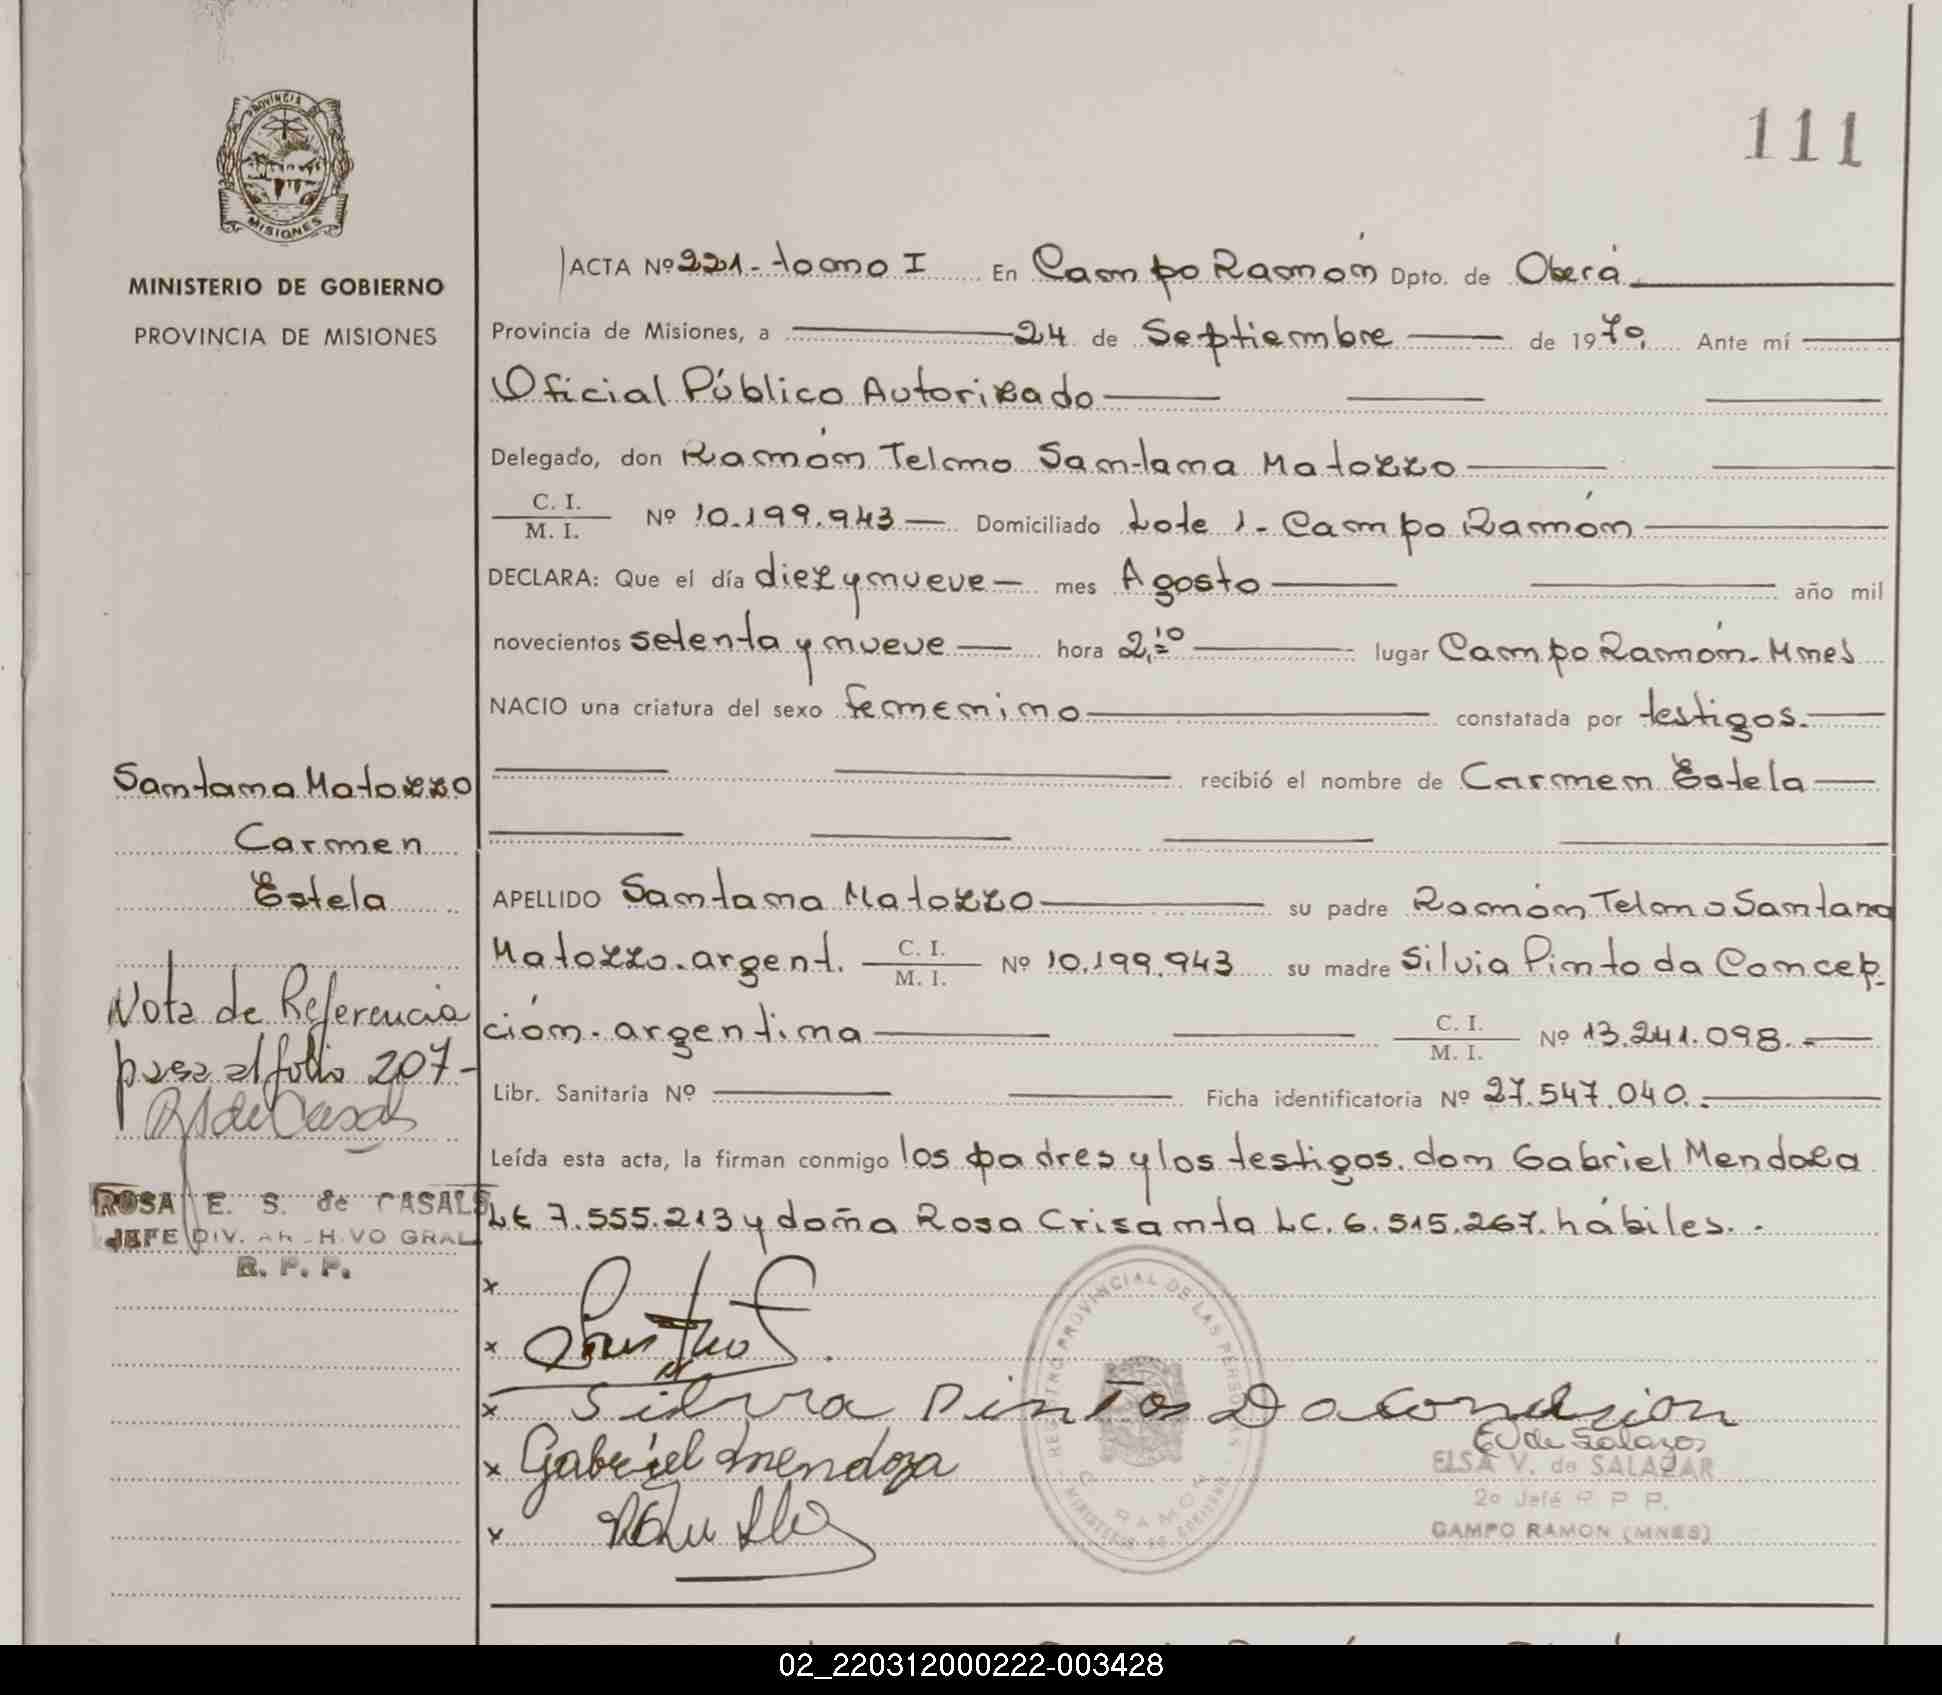 111
PROVINCIA DE
MISIONES
MINISTERIO DE GOBIERNO
PROVINCIA DE MISIONES
ACTA Nº 221 - tomo I En Campo Ramón Dpto. de Oberá
Provincia de Misiones, a 24 de Septiembre de 1970. Ante mí
Oficial Público Autorizado
Delegado, don Ramón Telmo Santana Matozzo
C. I.
M. I. Nº 10.199.943 Domiciliado Lote 1 - Campo Ramón
DECLARA: Que el día diez y nueve mes Agosto año mil
novecientos setenta y nueve hora 2,10 lugar Campo Ramón - Mnes
NACIO una criatura del sexo femenino constatada por testigos.
recibió el nombre de Carmen Estela
Santana Matozzo
Carmen
Estela
APELLIDO Santana Matozzo su padre Ramón Telmo Santana
Matozzo. argent. C. I.
M. I. Nº 10.199.943 su madre Silvia Pinto da Concep-
ción. argentina C. I.
M. I. Nº 13.241.098.
Libr. Sanitaria Nº Ficha identificatoria Nº 27.547.040.
Leída esta acta, la firman conmigo los padres y los testigos. don Gabriel Mendoza
LE 7.555.213 y doña Rosa Crisanta LC. 6.515.267. hábiles.
Nota de Referencia
pasa al folio 207 -
RS de Casals
ROSA E. S. de CASALS
JEFE DIV. ARCHIVO GRAL
R. P. P.
x
x
x Silvia Pinto Da
x Gabriel Mendoza
x
REGISTRO PROVINCIAL DE LAS PERSONAS
C. RAMON
MINISTERIO DE GOBIERNO
E V de Salazar
ELSA V. de SALAZAR
2º Jefé R P P.
CAMPO RAMON (MNES)
02_220312000222-003428